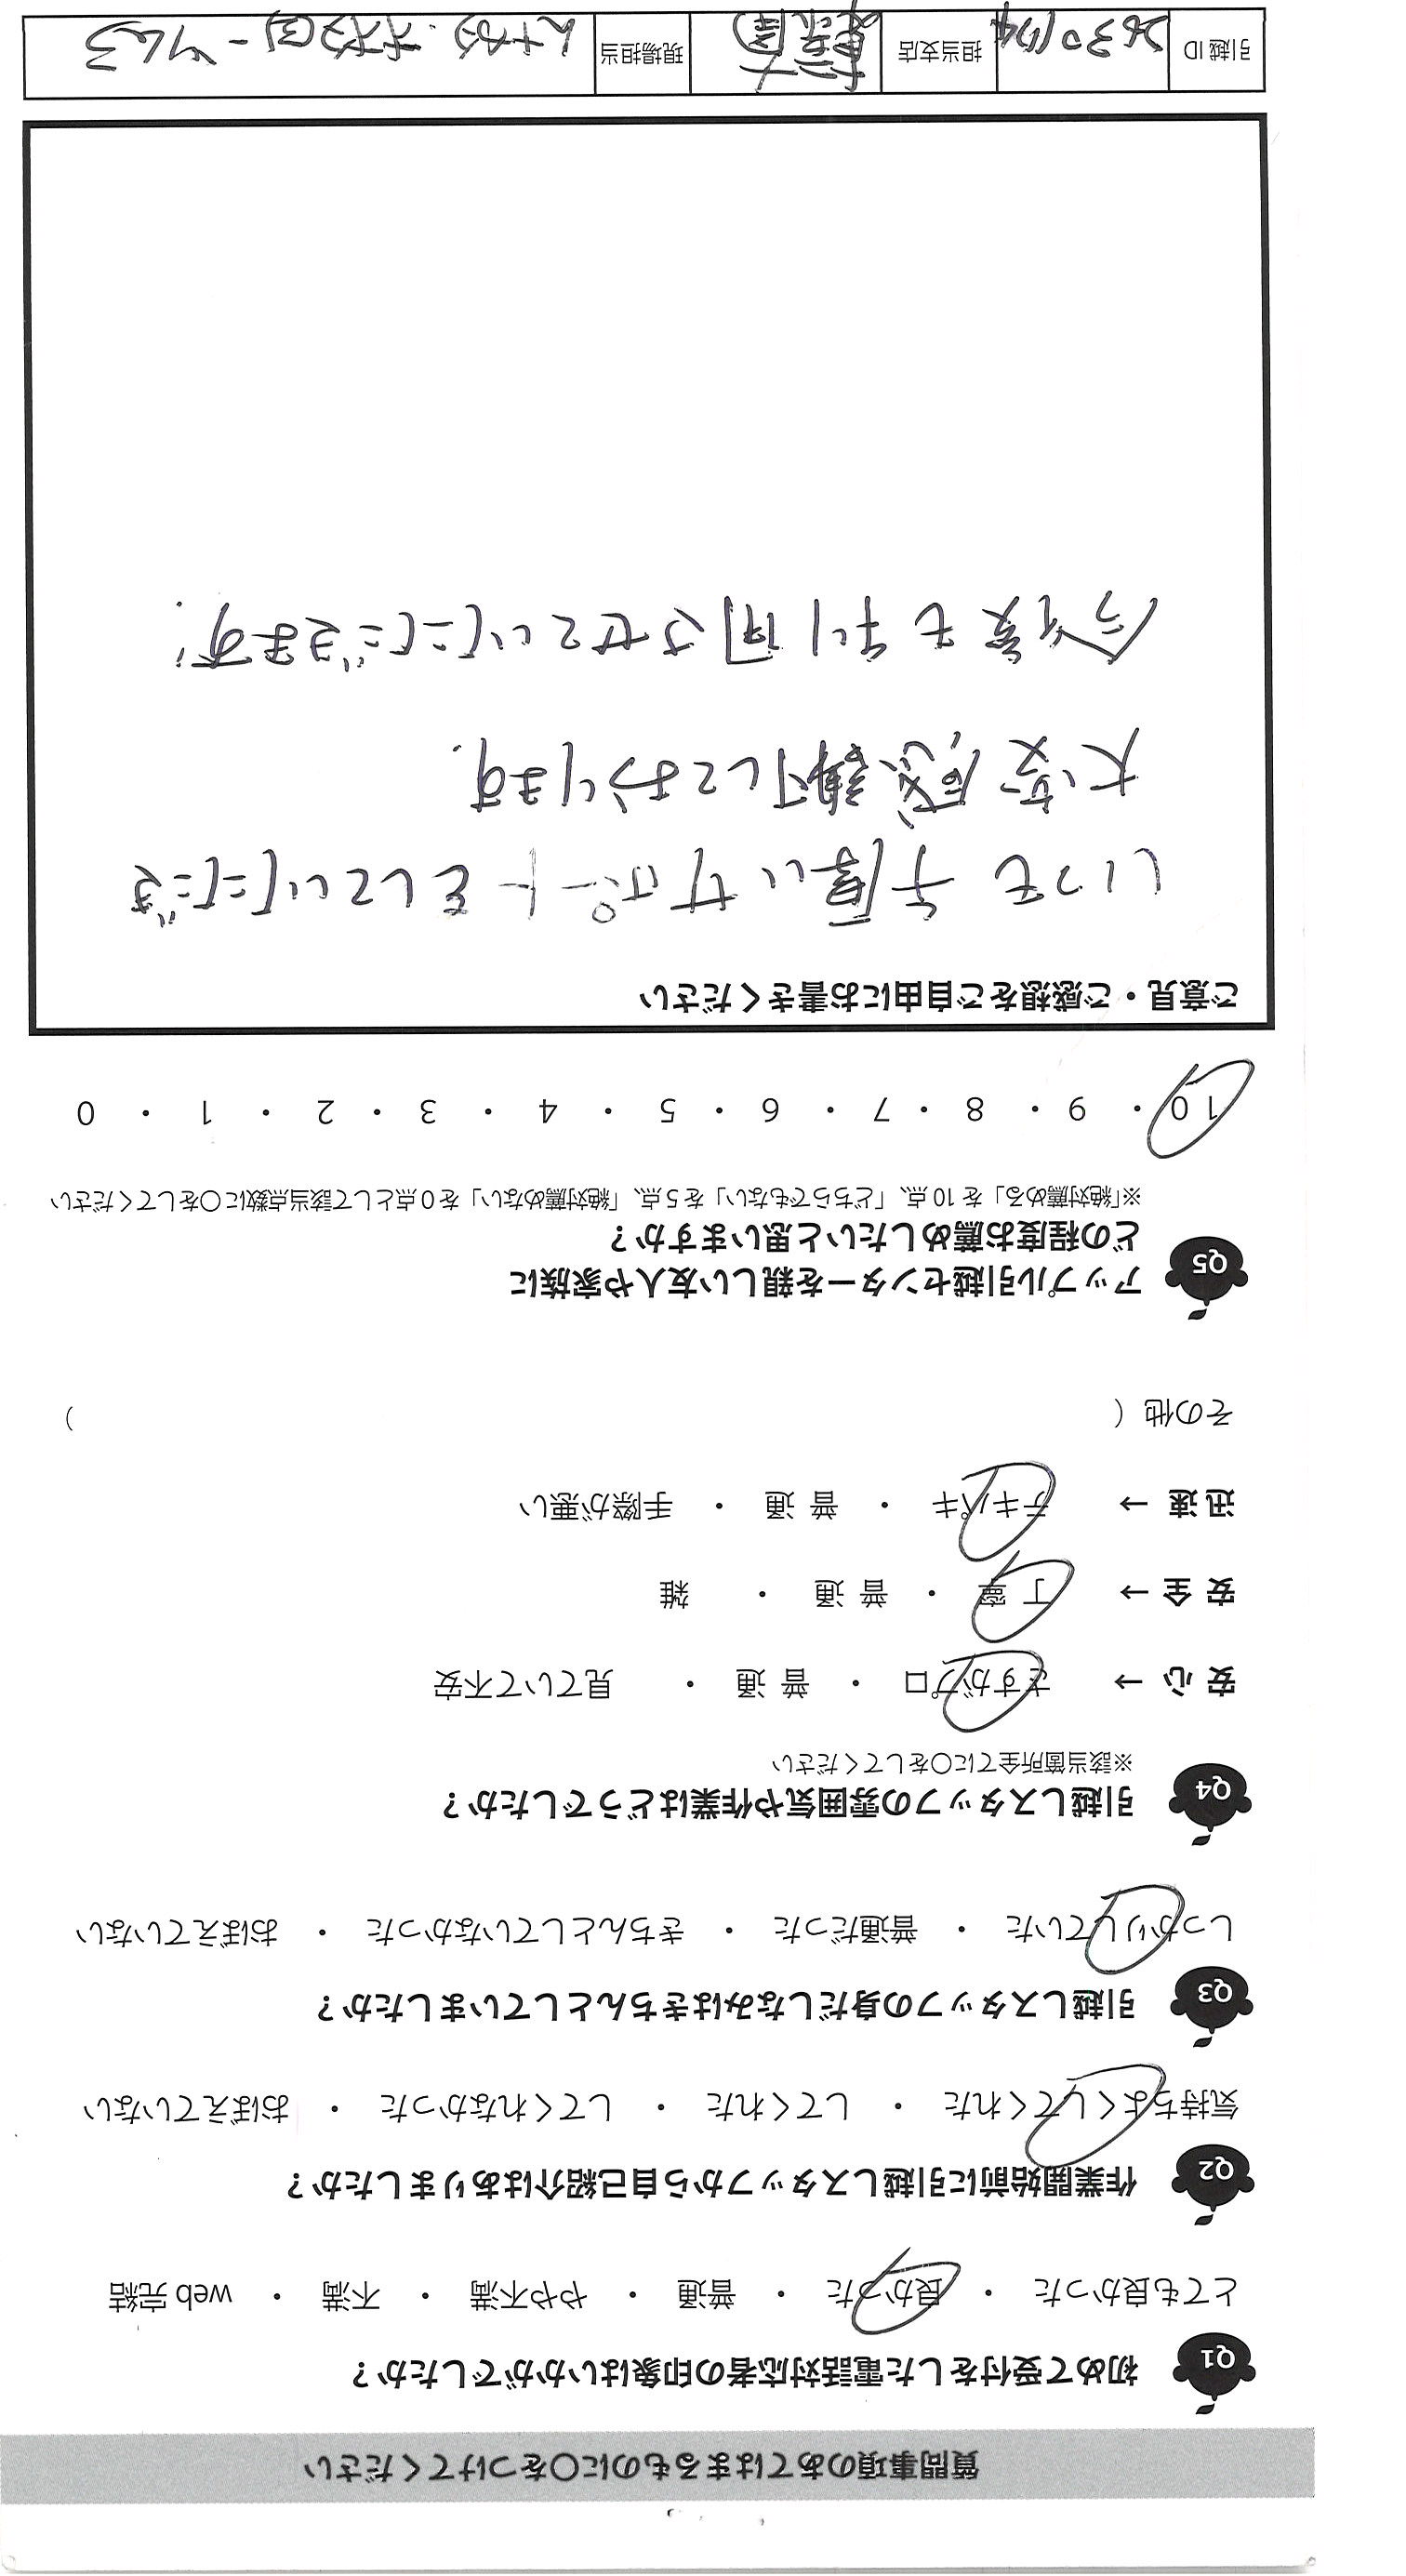 質問事項のあてはまるものに○をつけてください
Q1 初めて受付をした電話対応者の印象はいかがでしたか？
とても良かった ・ 良かった ・ 普通 ・ やや不満 ・ 不満 ・ web 完結
Q2 作業開始前に引越しスタッフから自己紹介はありましたか？
気持ちよくしてくれた ・ してくれた ・ してくれなかった ・ おぼえていない
Q3 引越しスタッフの身だしなみはきちんとしていましたか？
しっかりしていた ・ 普通だった ・ きちんとしていなかった ・ おぼえていない
Q4 引越しスタッフの雰囲気や作業はどうでしたか？
※該当箇所全てに○をしてください
安 心 → さすがプロ ・ 普 通 ・ 見ていて不安
安 全 → 丁 寧 ・ 普 通 ・ 雑
迅 速 → テキパキ ・ 普 通 ・ 手際が悪い
その他（ ）
Q5 アップル引越センターを親しい友人や家族に
どの程度お薦めしたいと思いますか？
※「絶対薦める」を 10 点、「どちらでもない」を 5 点、「絶対薦めない」を 0 点として該当点数に○をしてください
10 ・ 9 ・ 8 ・ 7 ・ 6 ・ 5 ・ 4 ・ 3 ・ 2 ・ 1 ・ 0
ご意見・ご感想をご自由にお書きください
いつも手厚いサポートをしていただき
大変感謝しております。
今後も利用させていただきます！
引越 ID 担当支店 現場担当